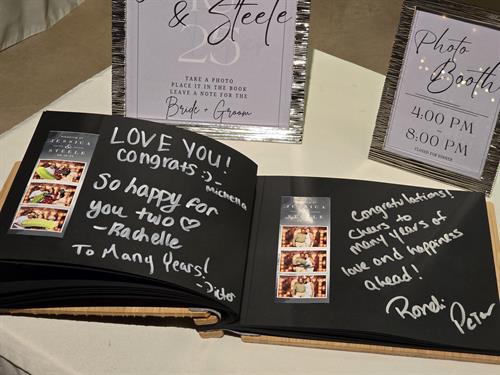 & Steele
25
TAKE A PHOTO
PLACE IT IN THE BOOK
LEAVE A NOTE FOR THE
Bride + Groom
Photo
Booth
4:00 PM
-
8:00 PM
CLOSED FOR DINNER
JESSICA
&
STEELE
LOVE YOU!
congrats :)
- Michella
So happy for
you two ♡
- Rachelle
To Many Years!
JESSICA
STEELE
Congratulations!
Cheers to
many years of
love and happiness
ahead!
Rondi Peter